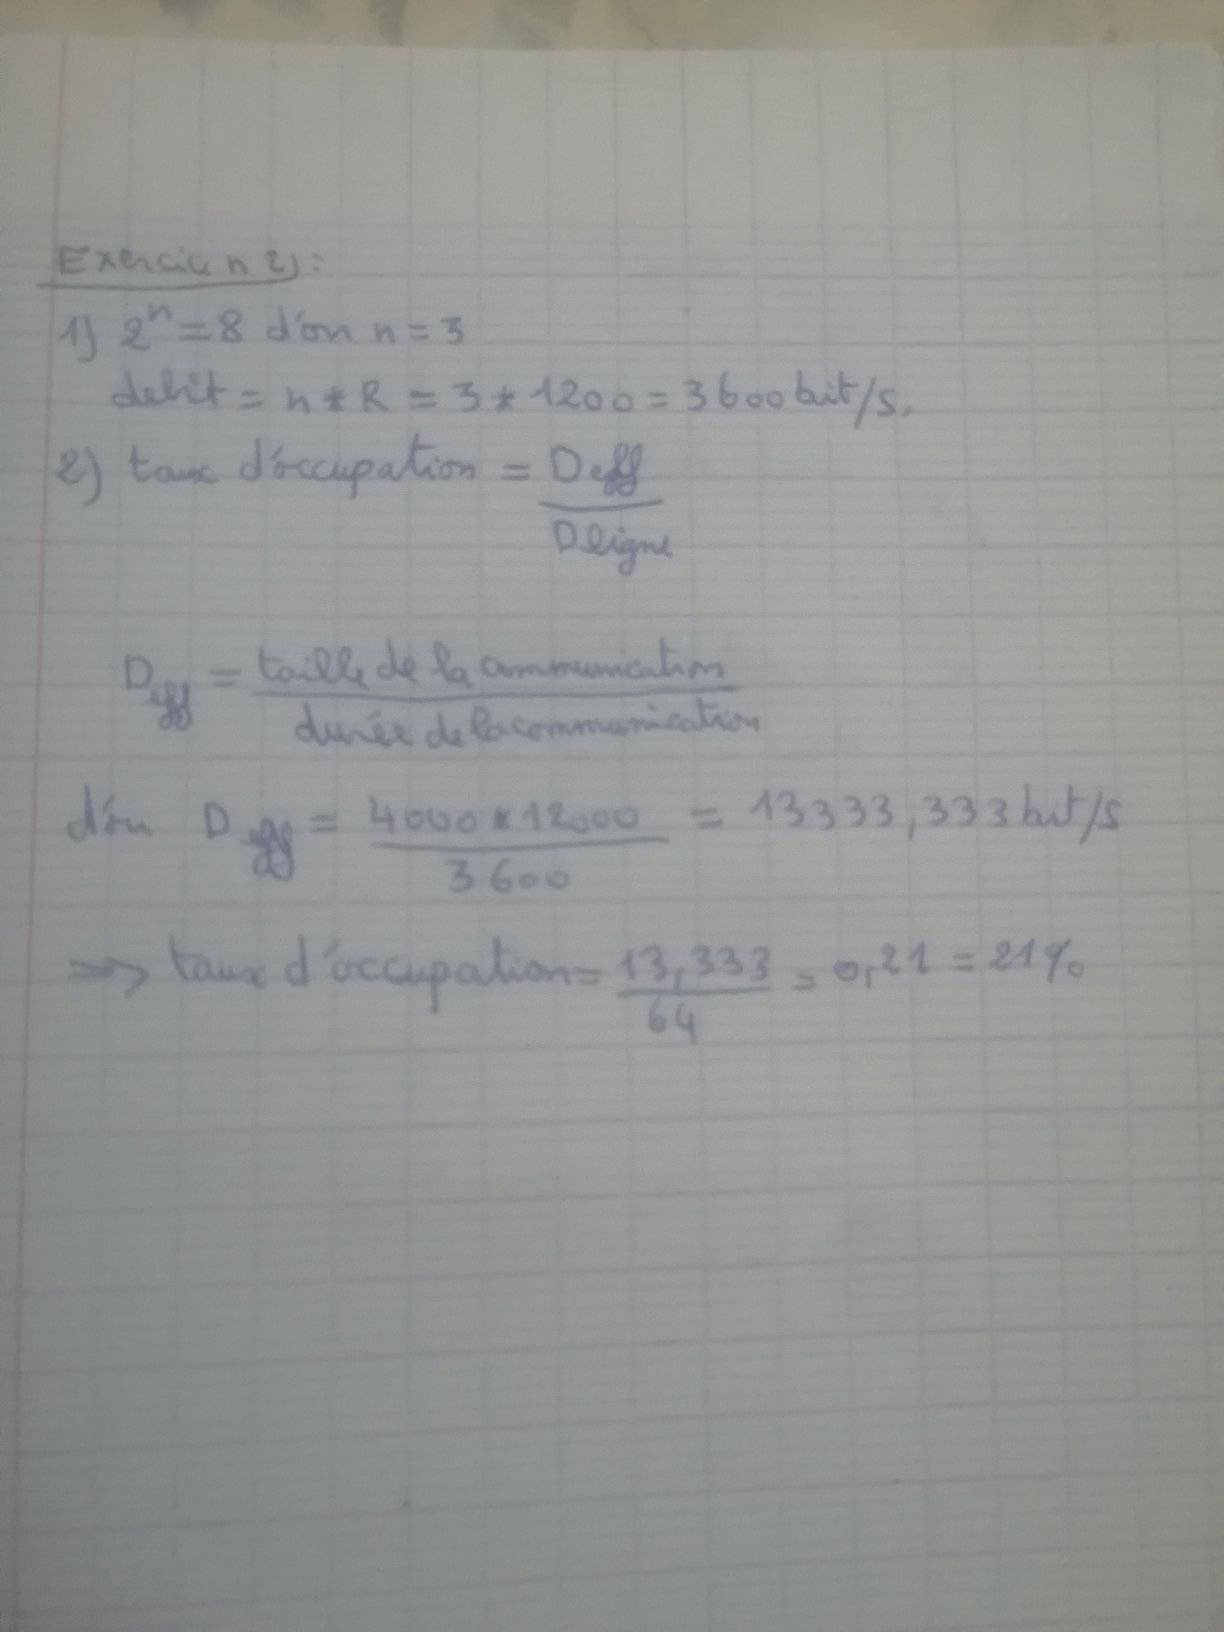 Exercice n 2) :
1) 2^n = 8 d'où n = 3
debit = n * R = 3 * 1200 = 3600 bit/s.
2) taux d'occupation = Deff
Dligne
Deff = taille de la communication
durée de la communication
d'où Deff = 4000 * 12000 = 13333,333 bit/s
3600
=> taux d'occupation = 13,333 = 0,21 = 21%
64